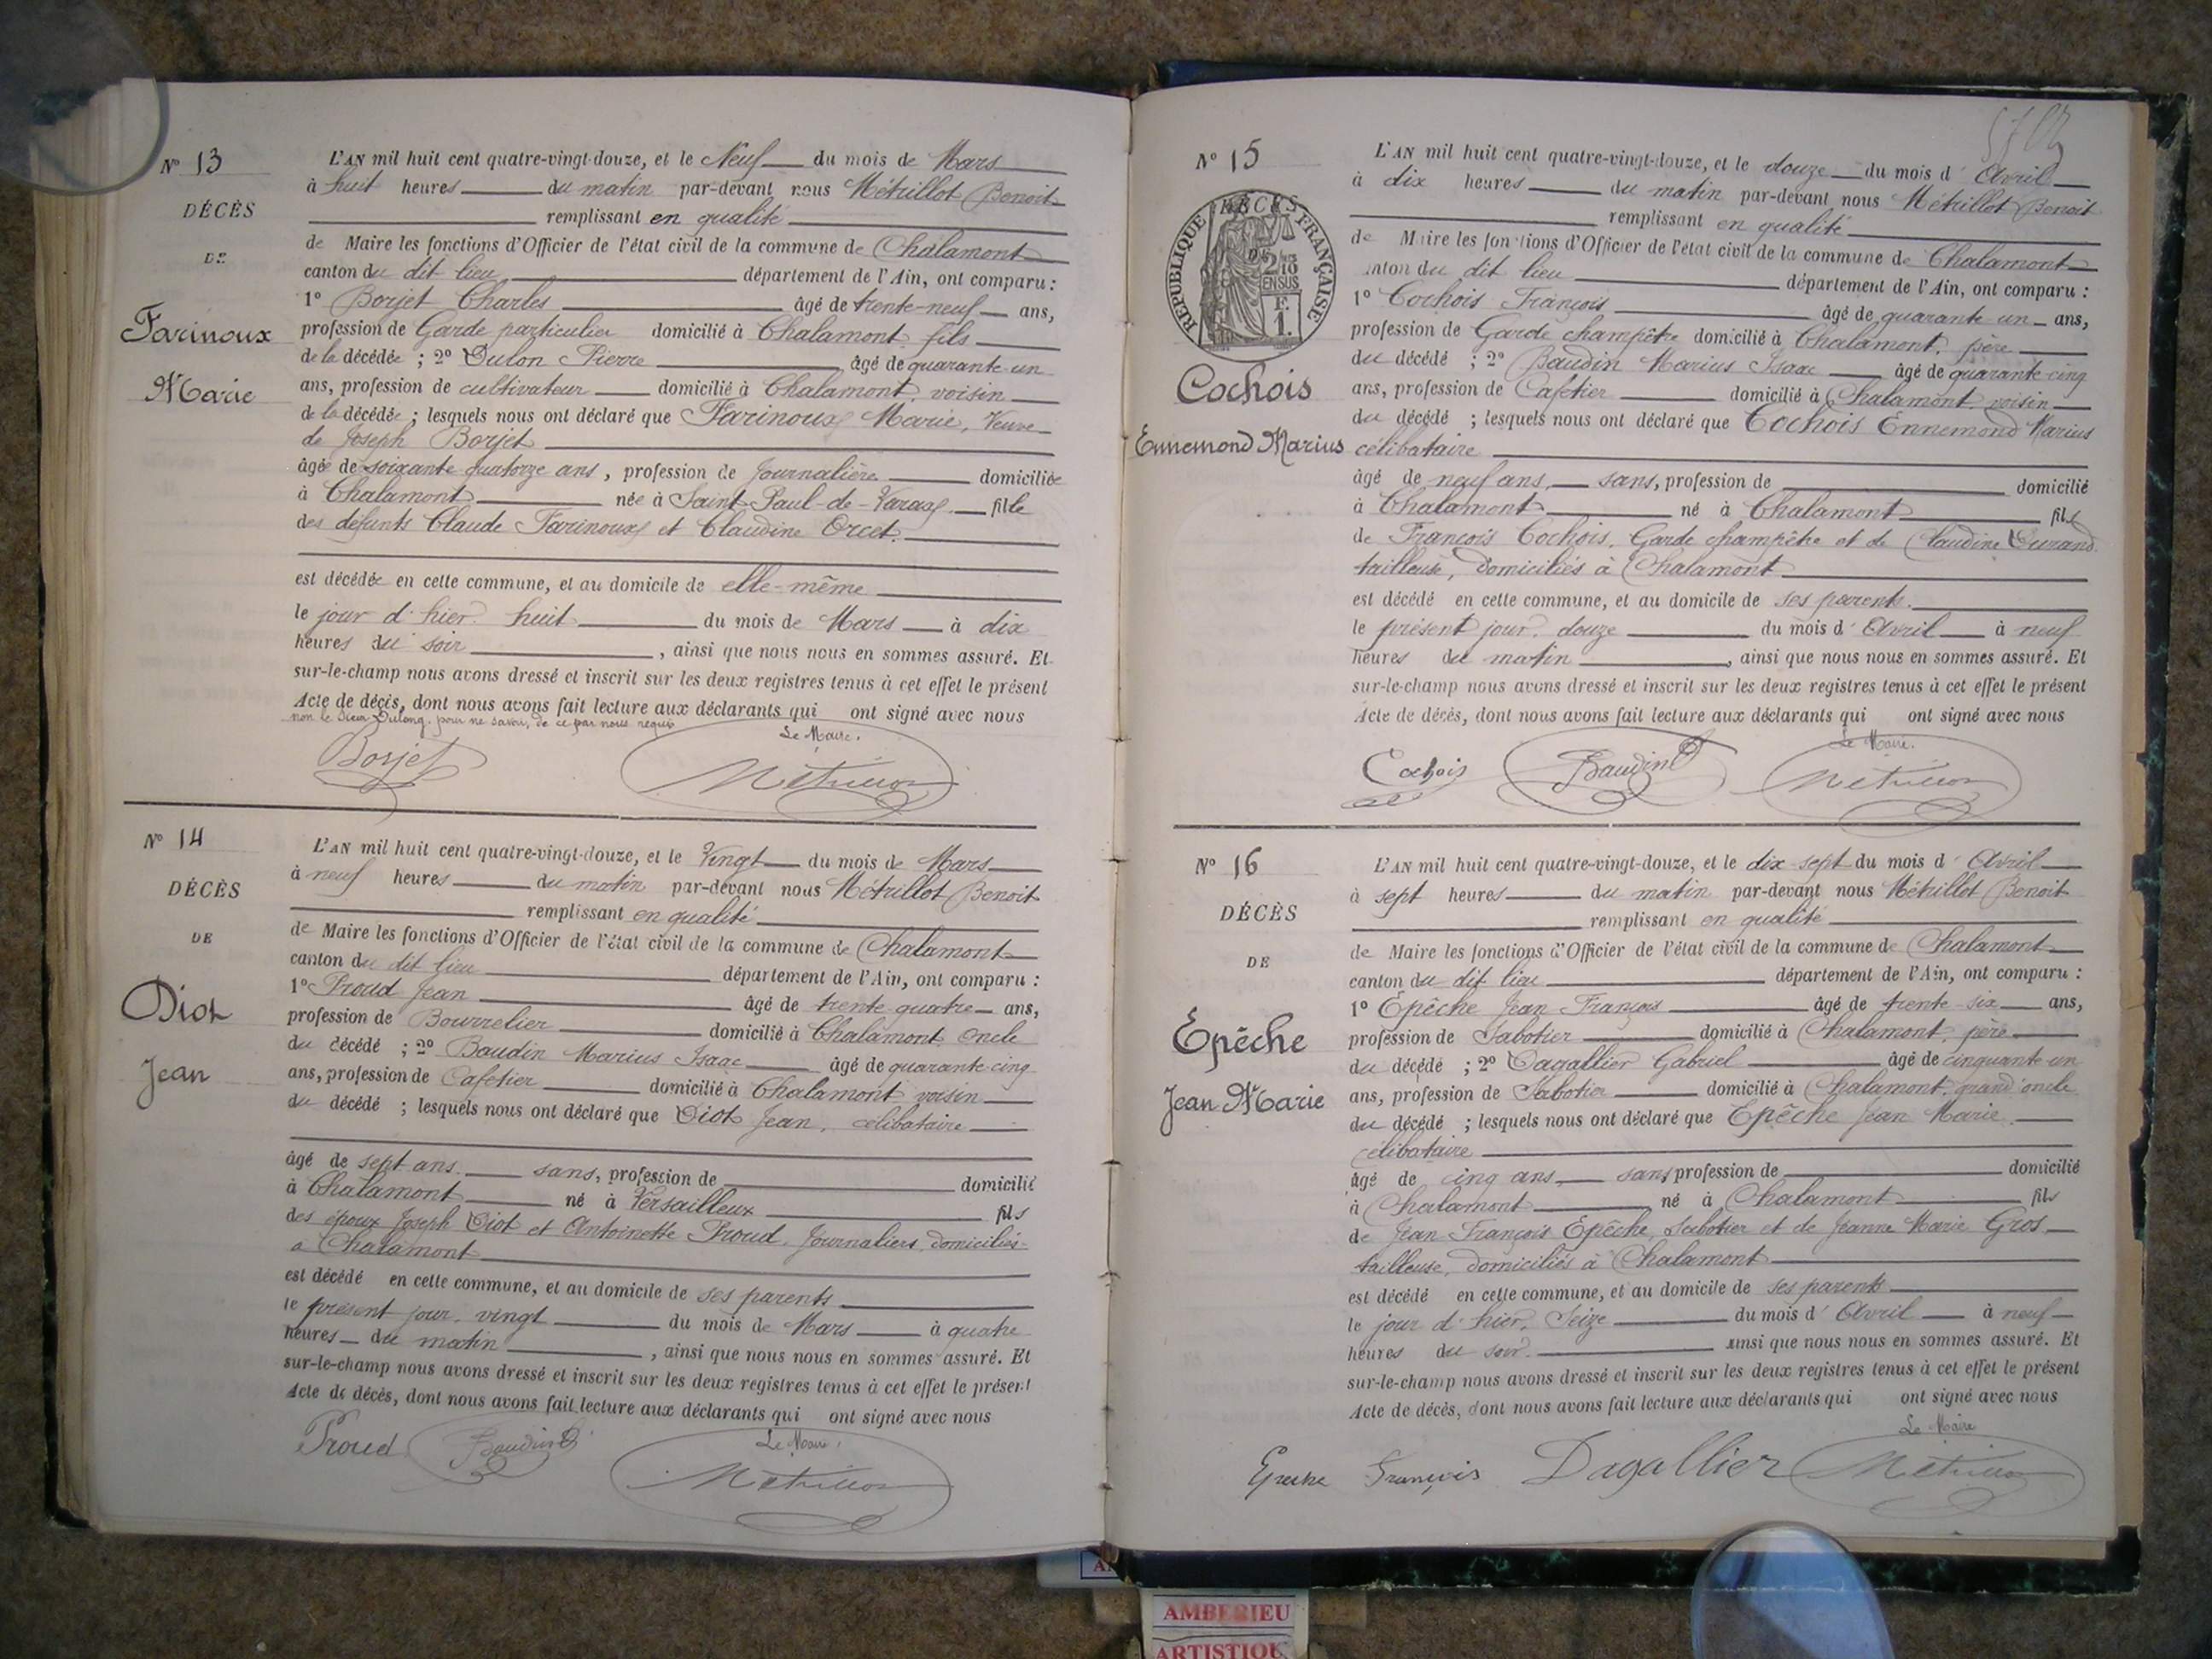 N° 13
DÉCÈS
DE
Farinoux
Marie
L'AN mil huit cent quatre-vingt-douze, et le Neuf du mois de Mars
à huit heures du matin par-devant nous Métrillot Benoit
remplissant en qualité
de Maire les fonctions d'Officier de l'état civil de la commune de Chalamont
canton du dit lieu département de l'Ain, ont comparu :
1° Borjet Charles âgé de trente-neuf ans,
profession de Garde particulier domicilié à Chalamont, fils
de la décédée ; 2° Dulon Pierre âgé de quarante-un
ans, profession de cultivateur domicilié à Chalamont, voisin
de la décédée ; lesquels nous ont déclaré que Farinoux Marie, Veuve
de Joseph Borjet
âgée de soixante quatorze ans, profession de Journalière domiciliée
à Chalamont née à Saint-Paul-de-Varax, fille
des défunts Claude Farinoux et Claudine Orcet.
est décédée en cette commune, et au domicile de elle-même
le jour d'hier huit du mois de Mars à dix
heures du soir, ainsi que nous nous en sommes assuré. Et
sur-le-champ nous avons dressé et inscrit sur les deux registres tenus à cet effet le présent
Acte de décès, dont nous avons fait lecture aux déclarants qui ont signé avec nous
non le sieur Dulong, pour ne savoir, de ce par nous requis
Le Maire.
Borjet Métrillot
N° 14
DÉCÈS
DE
Diot
Jean
L'AN mil huit cent quatre-vingt-douze, et le Vingt du mois de Mars
à neuf heures du matin par-devant nous Métrillot Benoit
remplissant en qualité
de Maire les fonctions d'Officier de l'état civil de la commune de Chalamont
canton du dit lieu département de l'Ain, ont comparu :
1° Proud Jean âgé de trente quatre ans,
profession de Bourrelier domicilié à Chalamont, oncle
du décédé ; 2° Baudin Marius Isaac âgé de quarante-cinq
ans, profession de Cafetier domicilié à Chalamont, voisin
du décédé ; lesquels nous ont déclaré que Diot Jean, célibataire
âgé de sept ans, sans, profession de domicilié
à Chalamont né à Versailleux fils
des époux Joseph Diot et Antoinette Proud, Journaliers, domiciliés
à Chalamont
est décédé en cette commune, et au domicile de ses parents
le présent jour, vingt du mois de Mars à quatre
heures du matin, ainsi que nous nous en sommes assuré. Et
sur-le-champ nous avons dressé et inscrit sur les deux registres tenus à cet effet le présent
Acte de décès, dont nous avons fait lecture aux déclarants qui ont signé avec nous
Le Maire,
Proud Baudin Métrillot
N° 15
RÉPUBLIQUE FRANÇAISE
2/10 EN SUS
F. 1.
Cochois
Ennemond Marius
L'AN mil huit cent quatre-vingt-douze, et le douze du mois d'Avril
à dix heures du matin par-devant nous Métrillot Benoit
remplissant en qualité
de Maire les fonctions d'Officier de l'état civil de la commune de Chalamont
canton du dit lieu département de l'Ain, ont comparu :
1° Cochois François âgé de quarante un ans,
profession de Garde champêtre domicilié à Chalamont, père
du décédé ; 2° Baudin Marius Isaac âgé de quarante-cinq
ans, profession de Cafetier domicilié à Chalamont, voisin
du décédé ; lesquels nous ont déclaré que Cochois Ennemond Marius
célibataire
âgé de neuf ans, sans, profession de domicilié
à Chalamont né à Chalamont fils
de François Cochois, Garde champêtre et de Claudine Durand
tailleuse, domiciliés à Chalamont
est décédé en cette commune, et au domicile de ses parents.
le présent jour, douze du mois d'Avril à neuf
heures du matin, ainsi que nous nous en sommes assuré. Et
sur-le-champ nous avons dressé et inscrit sur les deux registres tenus à cet effet le présent
Acte de décès, dont nous avons fait lecture aux déclarants qui ont signé avec nous
Le Maire.
Cochois Baudin Métrillot
N° 16
DÉCÈS
DE
Epêche
Jean Marie
L'AN mil huit cent quatre-vingt-douze, et le dix-sept du mois d'Avril
à sept heures du matin par-devant nous Métrillot Benoit
remplissant en qualité
de Maire les fonctions d'Officier de l'état civil de la commune de Chalamont
canton du dit lieu département de l'Ain, ont comparu :
1° Epêche Jean François âgé de trente-six ans,
profession de Sabotier domicilié à Chalamont, père
du décédé ; 2° Dagallier Gabriel âgé de cinquante-un
ans, profession de Sabotier domicilié à Chalamont, grand oncle
du décédé ; lesquels nous ont déclaré que Epêche Jean Marie
célibataire
âgé de cinq ans, sans profession de domicilié
à Chalamont né à Chalamont fils
de Jean François Epêche, Sabotier et de Jeanne Marie Gros
tailleuse, domiciliés à Chalamont
est décédé en cette commune, et au domicile de ses parents
le jour d'hier, Seize du mois d'Avril à neuf
heures du soir. ainsi que nous nous en sommes assuré. Et
sur-le-champ nous avons dressé et inscrit sur les deux registres tenus à cet effet le présent
Acte de décès, dont nous avons fait lecture aux déclarants qui ont signé avec nous
Le Maire
Epeche François Dagallier Métrillot
AMBERIEU
ARTISTIQU